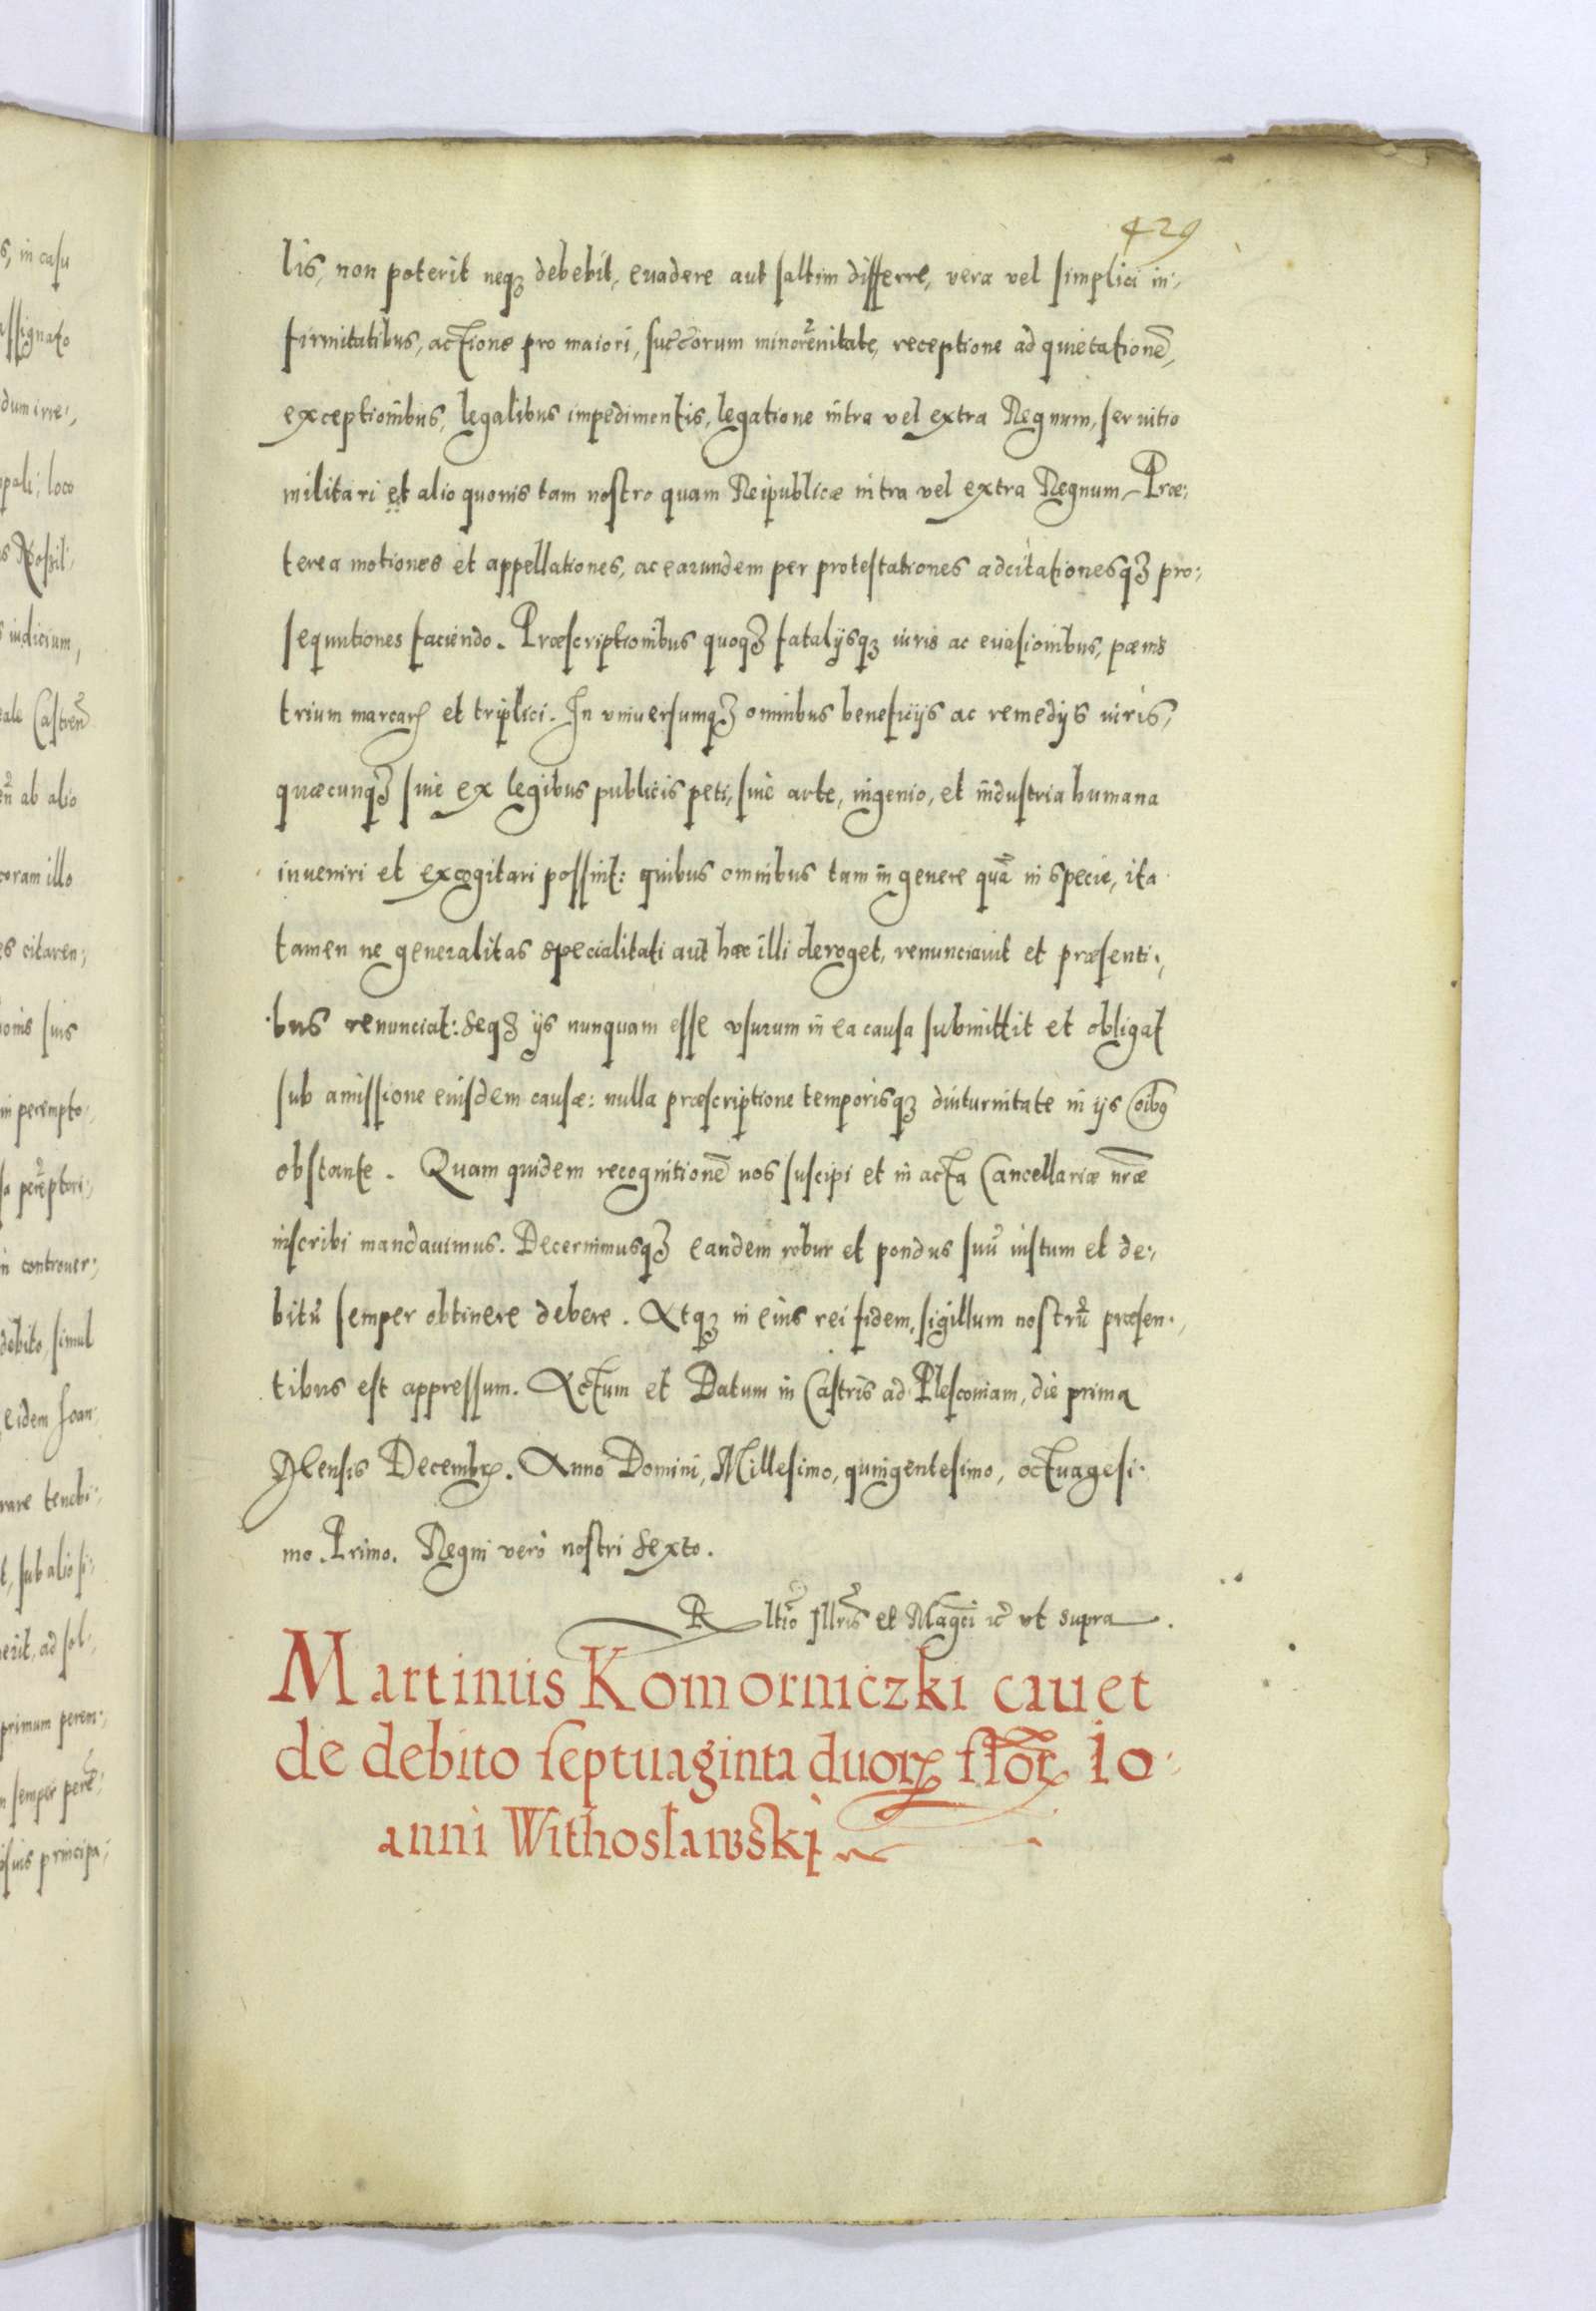 429
lis, non poterit neqȝ debebit, euadere aut saltim differre, vera vel simplici in:
firmitatibus, actione pro maiori, succorum minorenitate, receptione ad quietationē,
exceptionibus, legalibus impedimentis, legatione intra vel extra Regnum, seruitio
militari et alio quouis tam nostro quam Reipublicæ intra vel extra Regnum, Præ:
terea motiones et appellationes, ac earundem per protestationes adcitationesqȝ pro:
sequutiones faciendo. Præscriptionibus quoqȝ fatalijsqȝ iuris ac euasionibus, pænis
trium marcarꝝ et triplici. In vniuersumqȝ omnibus beneficijs ac remedijs iuris,
quæcunqȝ siue ex legibus publicis peti, siue arte, ingenio, et industria humana
inueniri et excogitari possint: quibus omnibus tam in genere quā in specie, ita
tamen ne generalitas specialitati aut hæc illi deroget, renunciauit et præsenti:
bus renunciat: seqȝ ijs nunquam esse vsurum in ea causa submittit et obligat
sub amissione eiusdem causæ: nulla præscriptione temporisqȝ diuturnitate in ijs oībꝯ
obstante. Quam quidem recognitionē nos suscipi et in acta Cancellariæ nr̄æ
inscribi mandauimus. Decernimusqȝ eandem robur et pondus suū iustum et de:
bitū semper obtinere debere. Atqȝ in eius rei fidem, sigillum nostrū præsen:
tibus est appressum. Actum et Datum in Castris ad Plesconiam, die prima
Mensis Decembrꝭ. Anno Domini, Millesimo, quingentesimo, octuagesi:
mo Primo. Regni verò nostri sexto.
Rltīo Illris et Magci ꝛc̄ vt supra.
Martinus Komorniczki cauet
de debito septuaginta duorꝝ fflorꝭ Io:
anni Withosławski